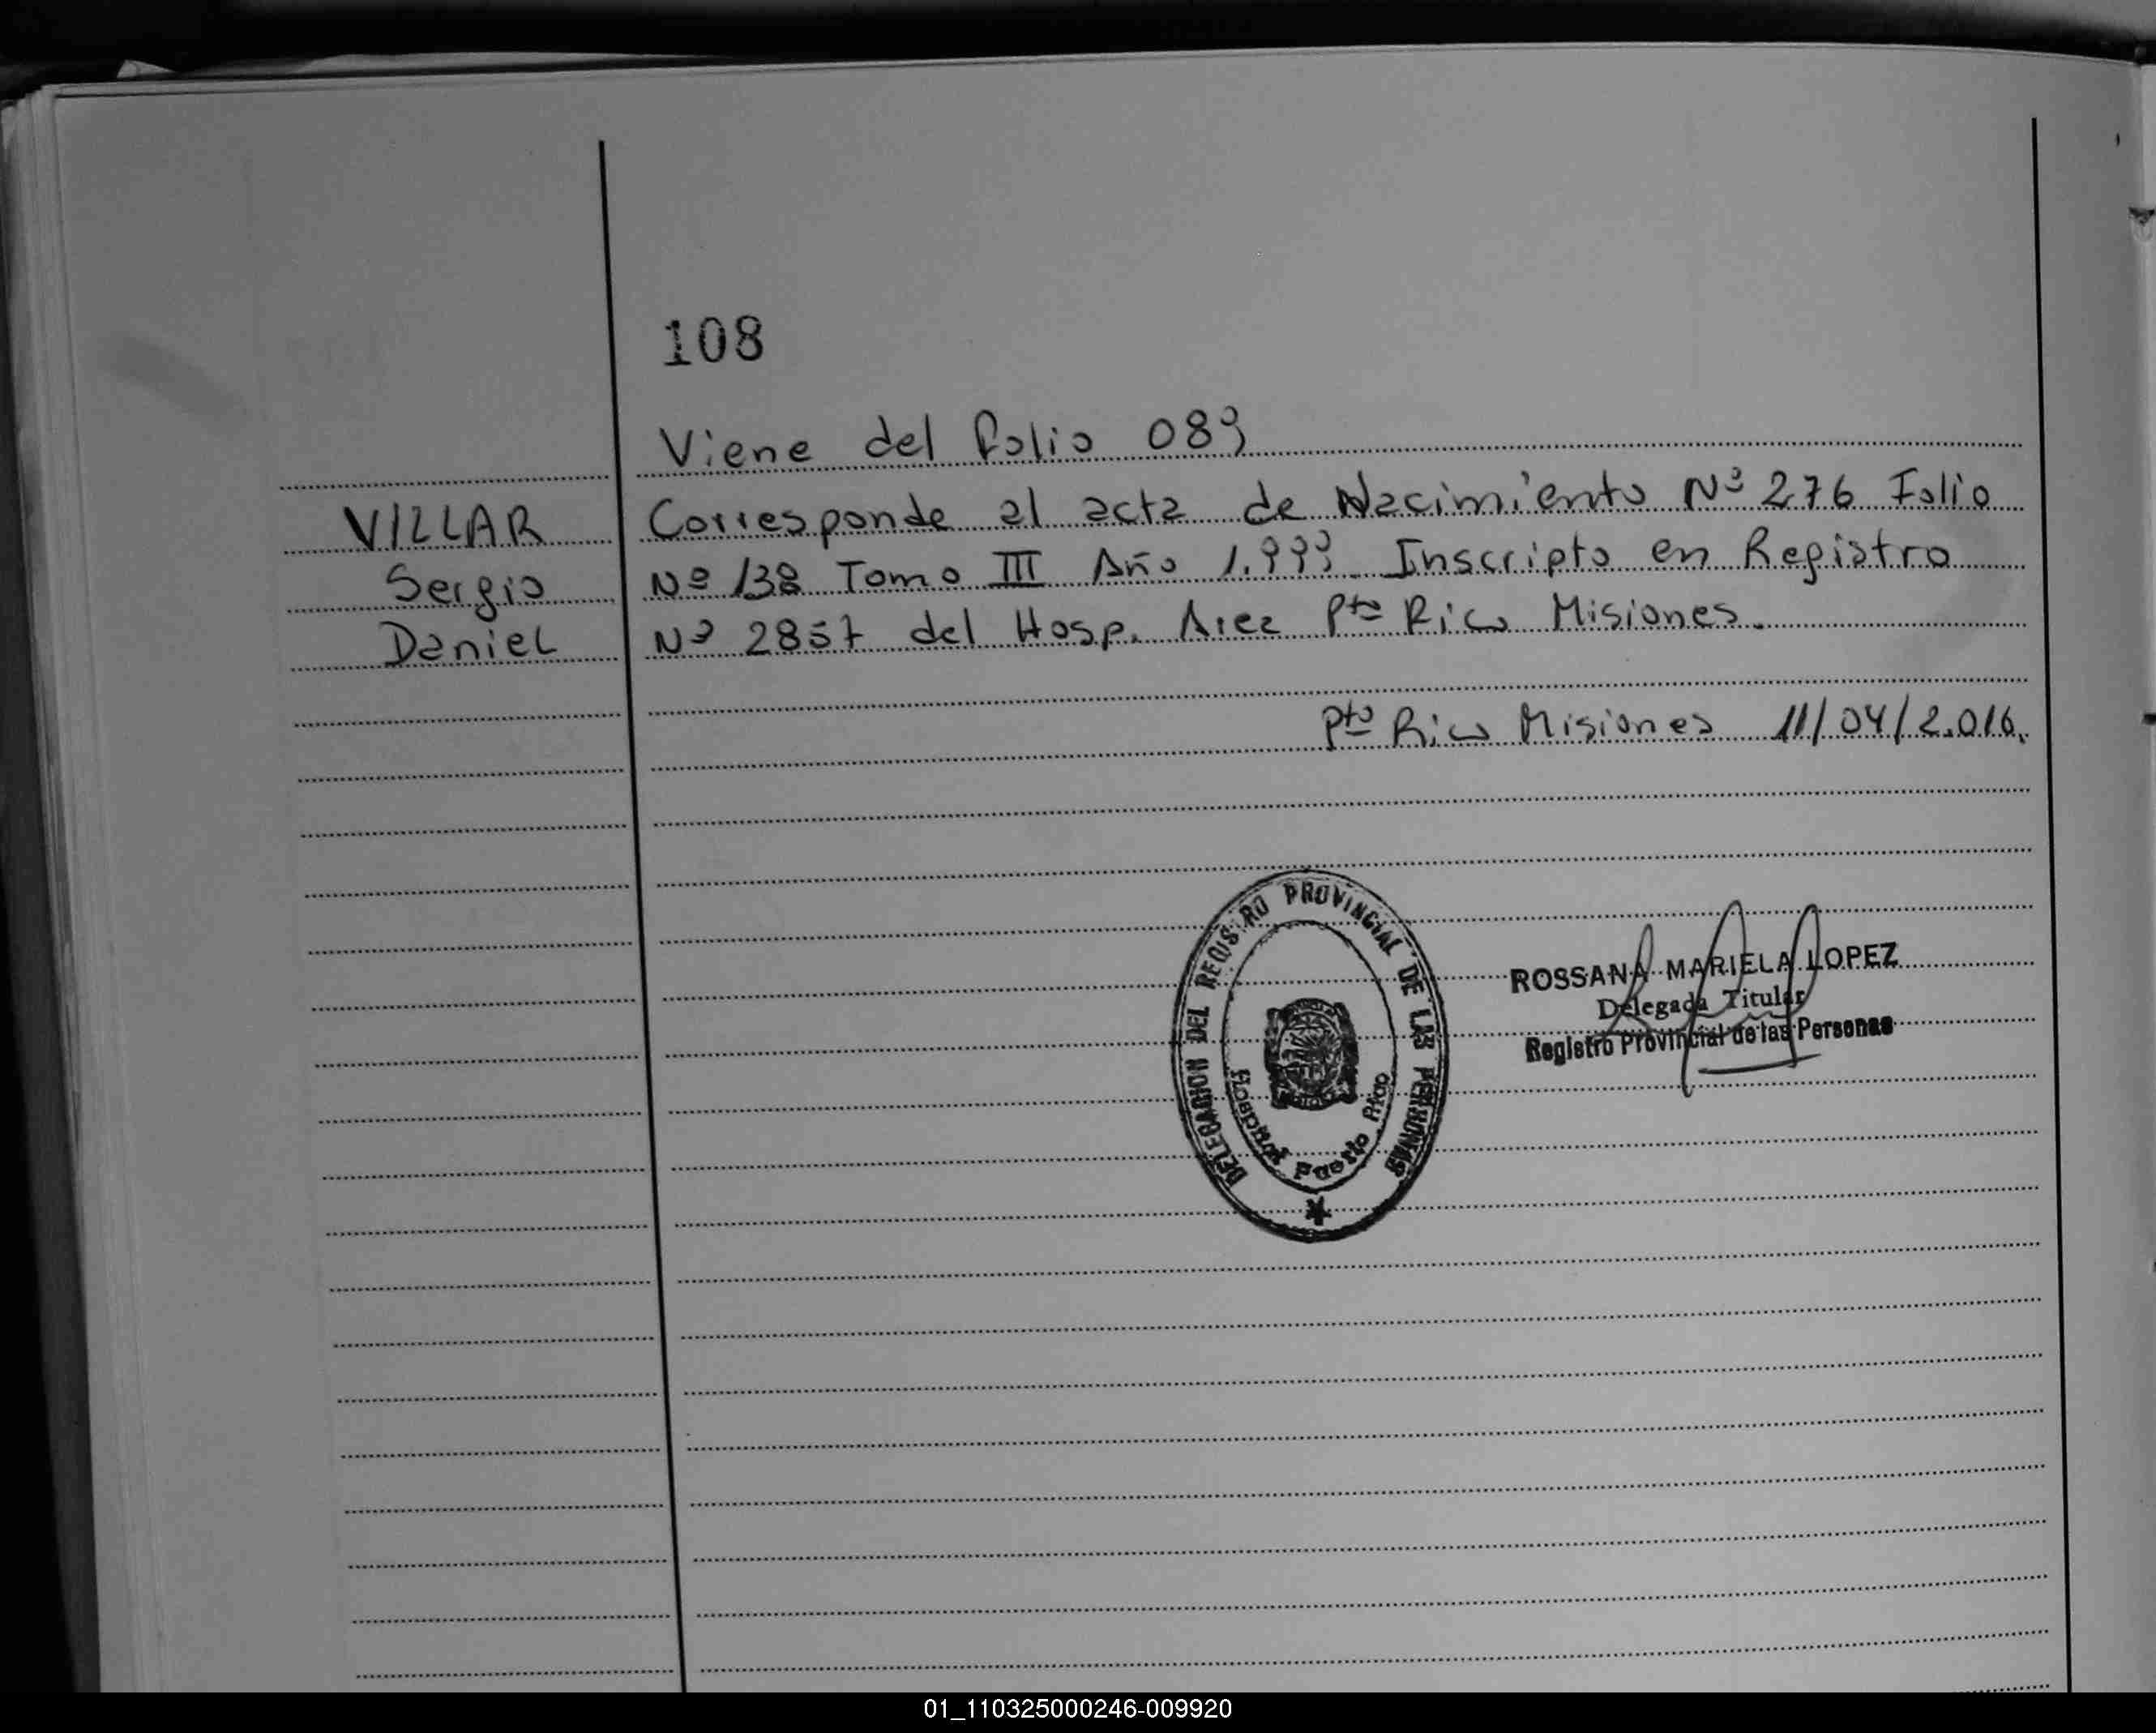 108
Viene del folio 089
VILLAR Corresponde al acta de Nacimiento Nº 276 Folio
Sergio Nº 138 Tomo III Año 1.999 Inscripto en Registro
Daniel Nº 2857 del Hosp. Area Pto Rico Misiones.
Pto Rico Misiones 11/04/2.016.
DELEGACION DEL REGISTRO PROVINCIAL DE LAS PERSONAS
Hospital Puerto Rico
ROSSANA MARIELA LOPEZ
Delegada Titular
Registro Provincial de las Personas
01_110325000246-009920